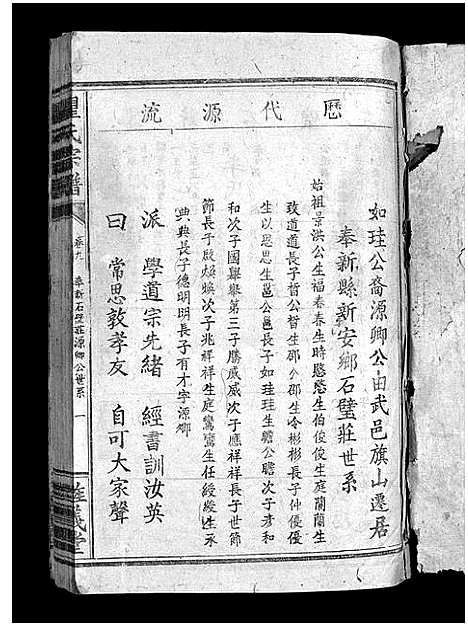 歷代源流
如珪公裔源卿公由武邑旗山遷居
奉新縣新安鄉石璧莊世系
始祖景洪公生福春春生時慜慜生伯俊俊生庭蘭蘭生
致道道長子哲公哲生邵公邵生吟彬彬長子仲優優
生以恩恩生邕公邕長子如珪珪生瞻公瞻次子彥和
和次子國舉舉第三子勝感感次子應祥祥長子世節
節長子啟煥煥次子兆祥祥生庭鸞鸞生任綬綬生承
典典長子德明明長子有才字源卿
派 學道宗先緒 經書訓汝英
曰 常思敦孝友 自可大家聲
氏宗譜
卷九 奉新石璧莊源卿公世系 一
義堂